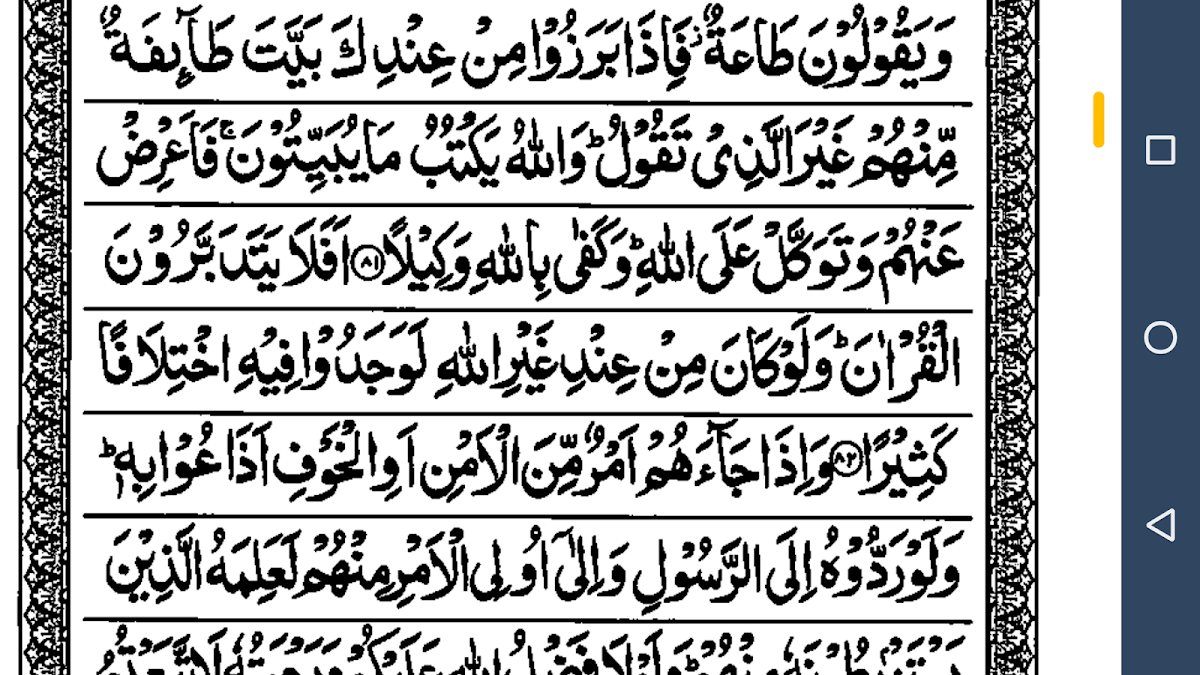 وَيَقُوۡلُوۡنَ طَاعَةٌ ۫ فَاِذَا بَرَزُوۡا مِنۡ عِنۡدِكَ بَيَّتَ طَآٮِٕفَةٌ
مِّنۡهُمۡ غَيۡرَ الَّذِىۡ تَقُوۡلُ ؕ وَاللّٰهُ يَكۡتُبُ مَا يُبَيِّتُوۡنَ ۚ فَاَعۡرِضۡ
عَنۡهُمۡ وَتَوَكَّلۡ عَلَى اللّٰهِ ؕ وَكَفٰى بِاللّٰهِ وَكِيۡلًا ﴿۸۱﴾ اَفَلَا يَتَدَبَّرُوۡنَ
الۡقُرۡاٰنَ ؕ وَلَوۡ كَانَ مِنۡ عِنۡدِ غَيۡرِ اللّٰهِ لَوَجَدُوۡا فِيۡهِ اخۡتِلَافًا
كَثِيۡرًا ﴿۸۲﴾ وَاِذَا جَآءَهُمۡ اَمۡرٌ مِّنَ الۡاَمۡنِ اَوِ الۡخَوۡفِ اَذَاعُوۡا بِهٖ ؕ
وَلَوۡ رَدُّوۡهُ اِلَى الرَّسُوۡلِ وَاِلٰٓى اُولِى الۡاَمۡرِ مِنۡهُمۡ لَعَلِمَهُ الَّذِيۡنَ